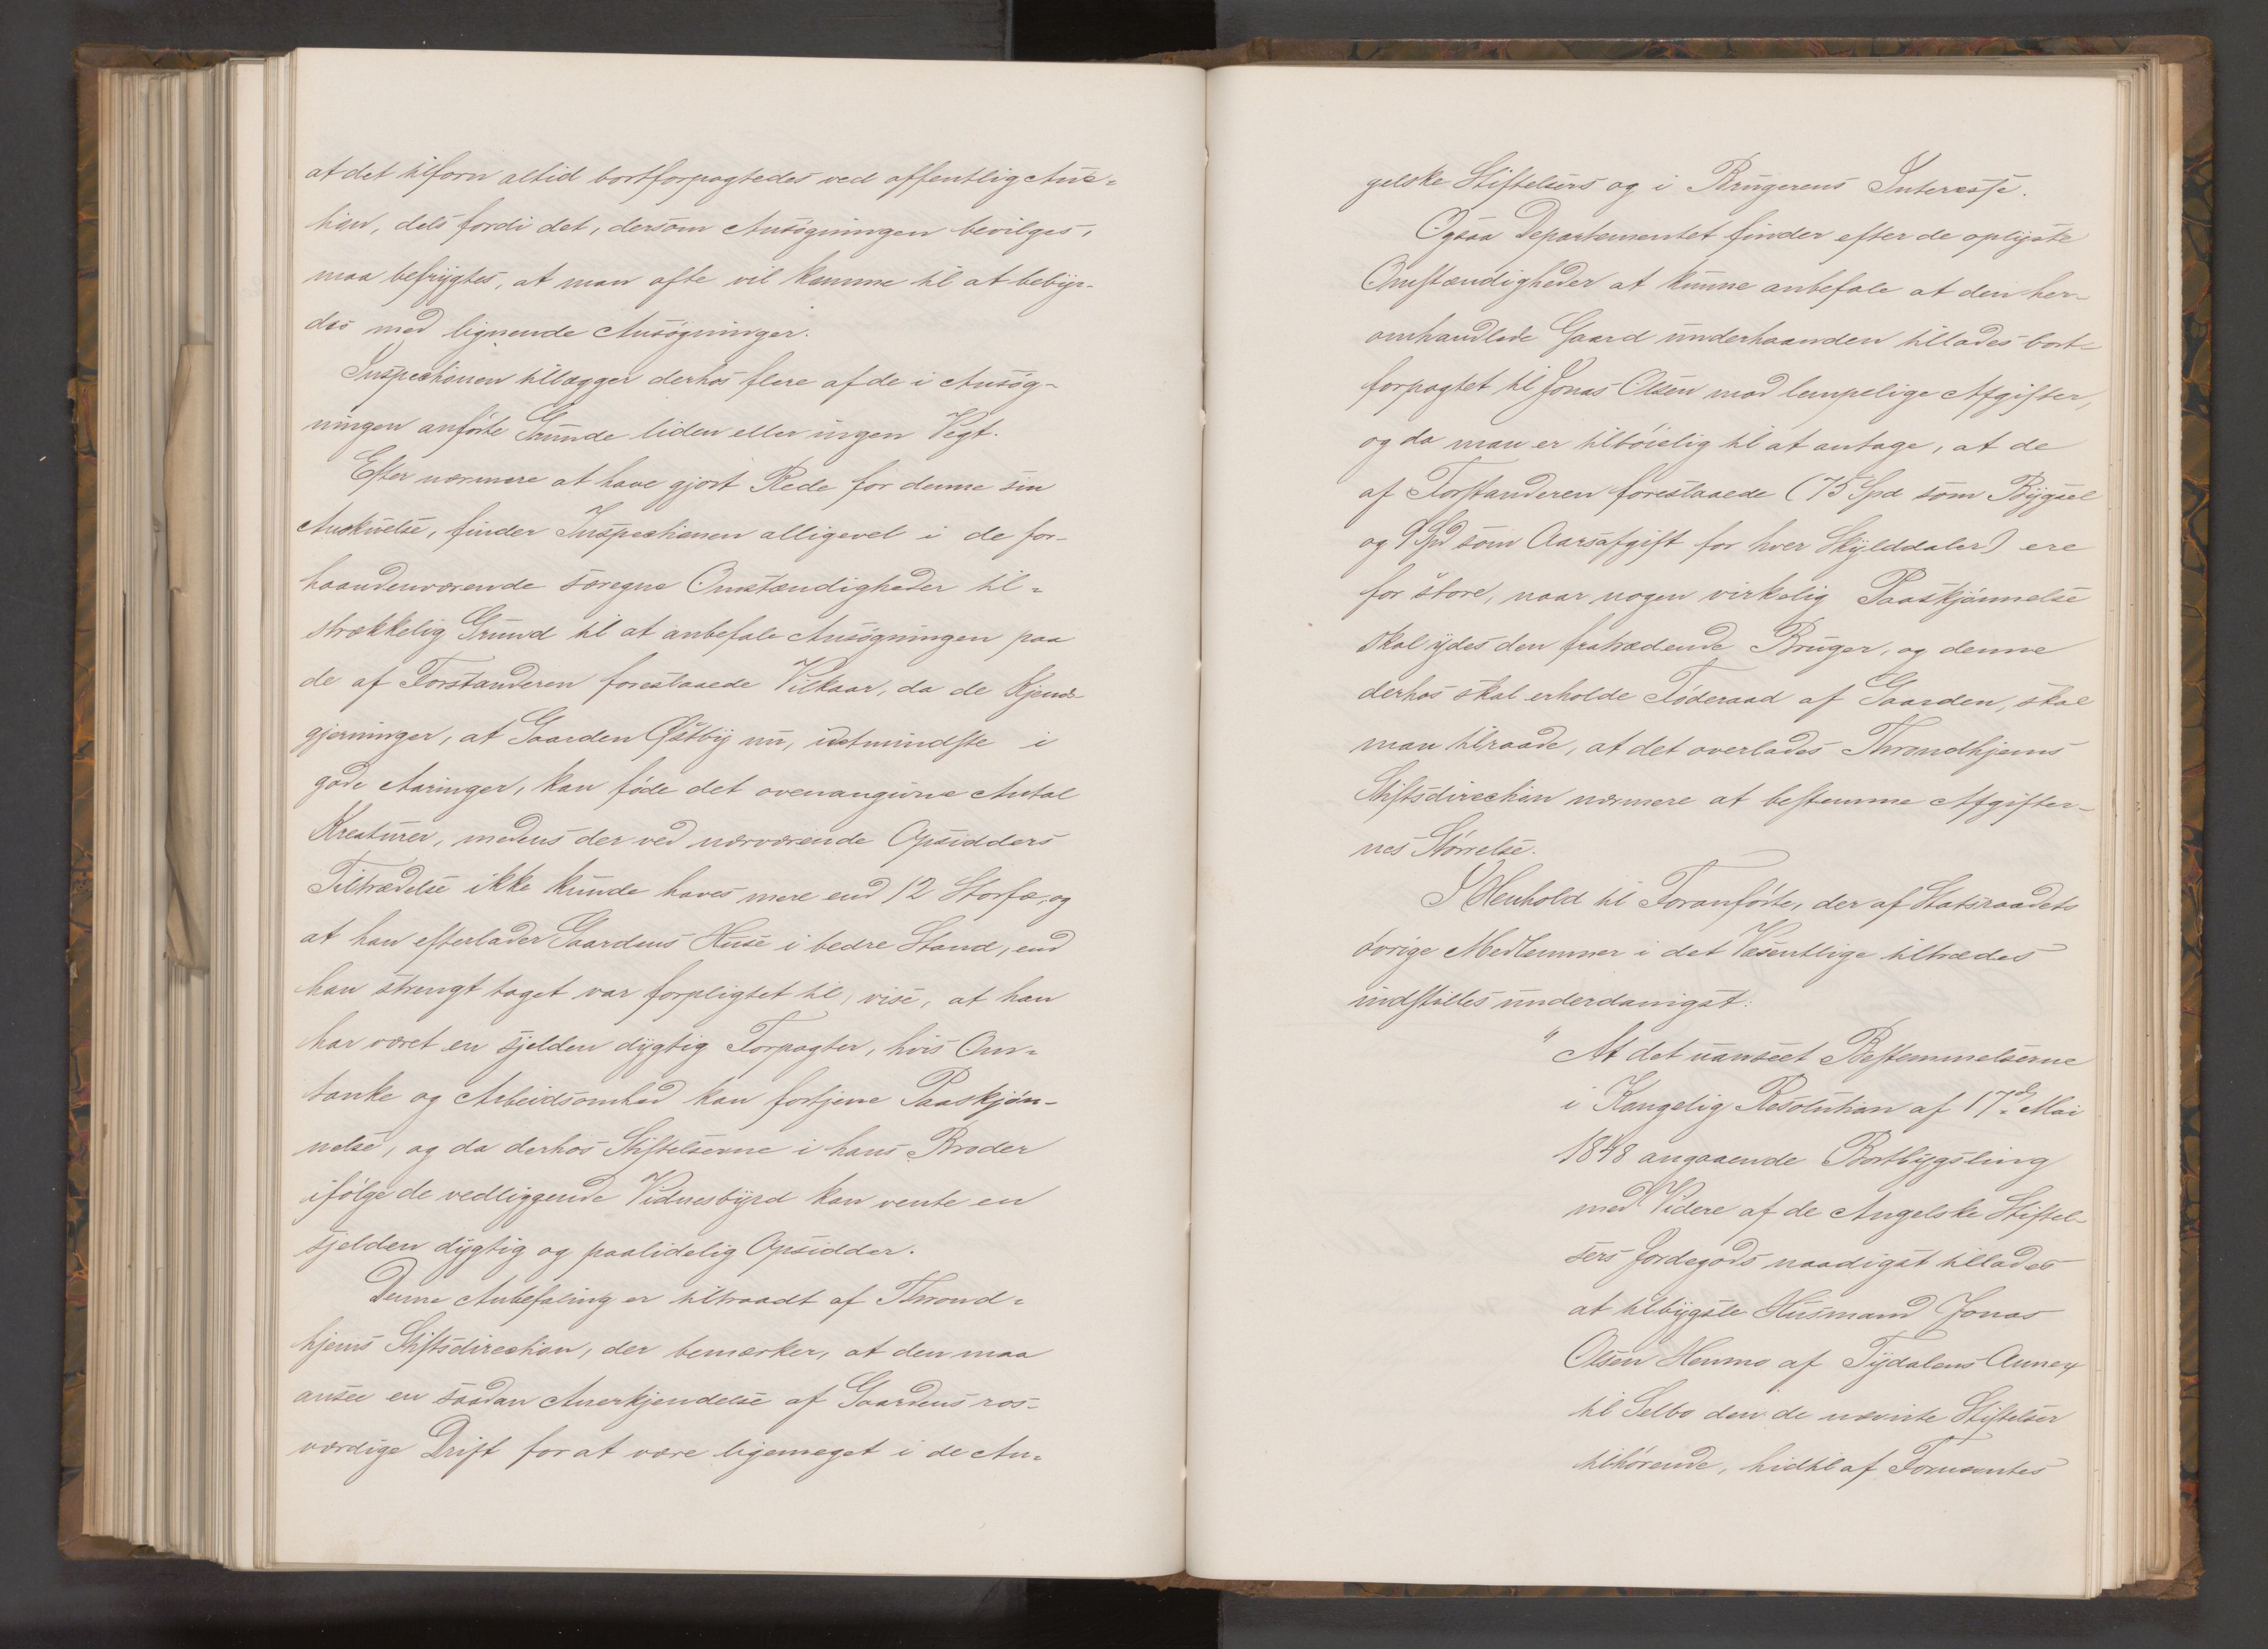 at det tilforn altid bortforpagtedes ved offentlig Auc-
tion, dels fordi det, dersom Ansøgningen bevilges,
maa befrygtes, at man ofte vil komme til at bebyr-
des med lignende Ansøgninger.
Inspectionen tillægger derhos flere af de i Ansøg-
ningen anførte Grunde liden eller ingen Vegt.
Efter nærmere at have gjort Rede for denne sin
Anskuelse, finder Inspectionen alligevel i de for-
haandenværende særegne Omstændigheder til-
strækkelig Grund til at anbefale Ansøgningen paa
de af Forstanderen foreslaaede Vilkaar, da de Kjends-
gjerninger, at Gaarden Østby nu, idetmindste i
gode Aaringer, kan føde det ovenangivne Antal
Kreaturer, medens der ved nærværende Opsidders
Tiltrædelse ikke kunde haves mere end 12 Storfæ, og
at han efterlader Gaardens Huse i bedre Stand, end
han strengt taget var forpligtet til, vise, at han
har været en sjelden dygtig Forpagter, hvis Om-
tanke og Arbeidsomhed kan fortjene Paaskjøn-
nelse, og da derhos Stiftelserne i hans Broder
ifølge de vedliggende Vidnesbyrd kan vente en
sjelden dygtig og paalidelig Opsidder.
Denne Anbefaling er tiltraadt af Thrond-
hjems Stiftsdirection, der bemærker, at den maa
ansee en saadan Anerkjendelse af Gaardens ros-
værdige Drift for at være ligemeget i de An-
gelske Stiftelsers og i Brugerens Interesse.
Ogsaa Departementet finder efter de oplyste
Omstændigheder at kunne anbefale at den her-
omhandlede Gaard underhaanden tillades bort-
forpagtet til Jonas Olsen mod lempelige Afgifter,
og da man er tilbøielig til at antage, at de
af Forstanderen foreslaaede (75 Spd som Bygsel
og 9 Spd som Aarsafgift for hver Skylddaler) ere
for store, naar nogen virkelig Paaskjønnelse
skal ydes den fratrædende Bruger, og denne
derhos skal erholde Føderaad af Gaarden, skal
man tilraade, at det overlades Throndhjems
Stiftsdirection nærmere at bestemme Afgifter-
nes Størrelse.
I Henhold til Foranførte, der af Statsraadets
øvrige Medlemmer i det Væsentlige tiltrædes
indstilles underdanigst:
" At det uanseet Bestemmelserne
i Kongelig Resolution af 17de Mai
1848 angaaende Bortbygsling
med Videre af de Angelske Stiftel-
sers Jordegods naadigst tillades
at tilbygsle Husmand Jonas
Olsen Henmo af Tydalens Annex
til Selbo den de nævnte Stiftelser
tilhørende, hidtil af Fornævntes